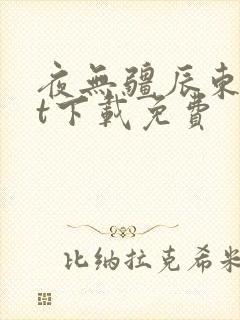 夜無疆辰東
t下載免費
比纳拉克希米